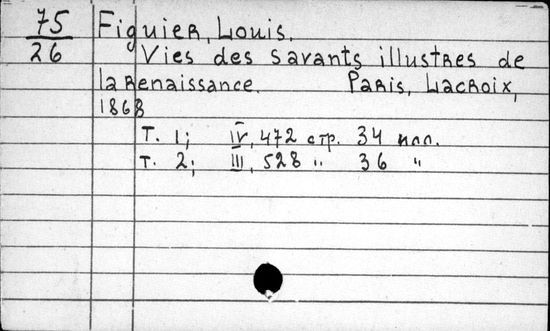 75
26
Figuier, Louis.
Vies des savants illustres de
la Renaissance. Paris, Lacroix,
1868
Т. 1; IV, 472 стр. 34 илл.
Т. 2; III, 528 " 36 "